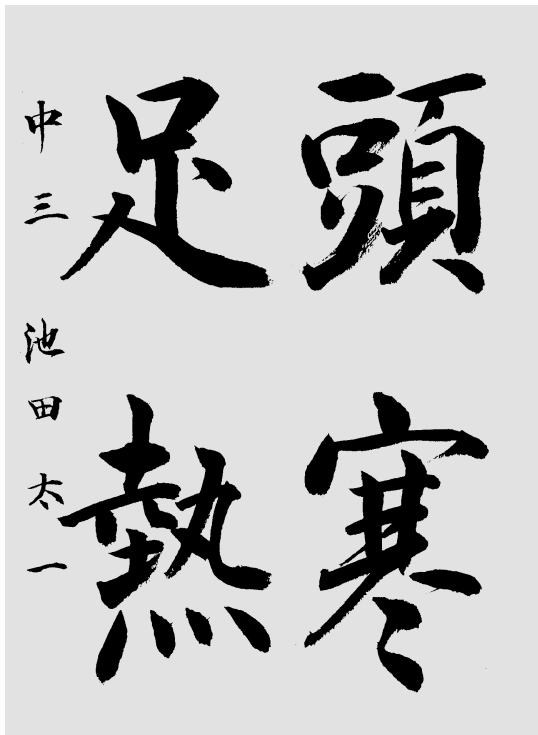 頭寒
足熱
中三 池田太一